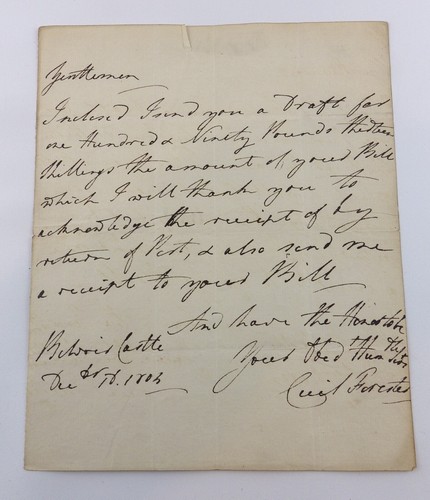 Gentlemen
Inclosed I send you a Draft for
one Hundred & Ninety Pounds thirteen
Shillings the amount of your Bill
which I will thank you to
acknowledge the receipt of by
return of Post, & also send me
a receipt to your Bill
And have the Honor to be
Belvoir Castle
Your Obed Hum Ser
Dec
Cecil Forester